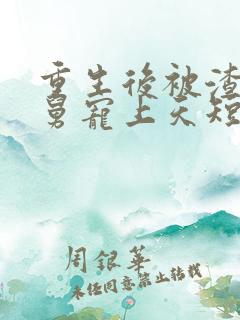 重生後被渣
舅寵上天短
周銀華
未经同意禁止转载